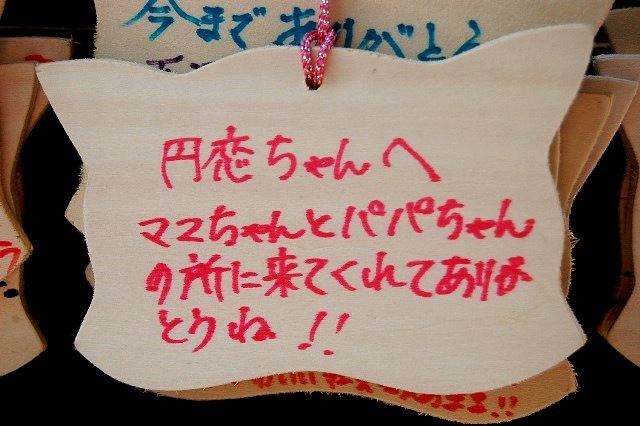 今までありがとう
円恋ちゃんへ
ママちゃんとパパちゃん
の所に来てくれてありが
とうね!!